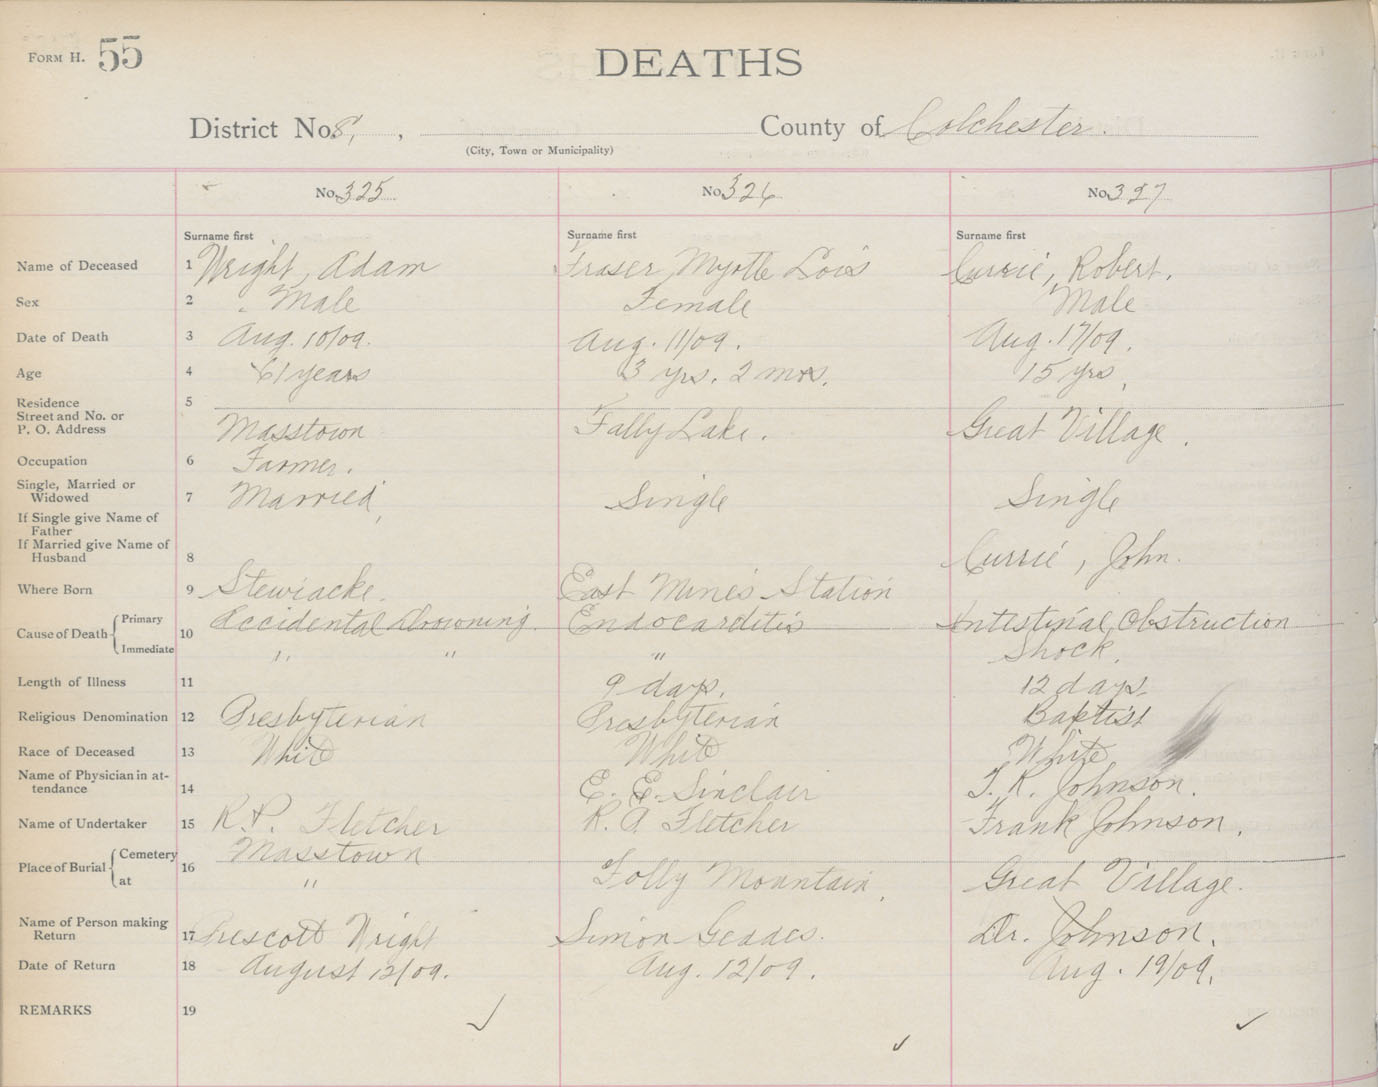 FORM H. 55
DEATHS
District No. 8, , County of Colchester.
(City, Town or Municipality)
No. 325 No. 326 No. 327
Surname first Surname first Surname first
Name of Deceased 1 Wright, Adam Fraser, Myrtle Lois Currie, Robert.
Sex 2 Male Female Male
Date of Death 3 Aug. 10/09. Aug. 11/09. Aug. 17/09.
Age 4 61 years 3 yrs. 2 mos. 15 yrs.
Residence 5
Street and No. or
P. O. Address Masstown Folly Lake. Great Village.
Occupation 6 Farmer.
Single, Married or
Widowed 7 Married, Single Single
If Single give Name of
Father
If Married give Name of
Husband 8 Currie, John.
Where Born 9 Stewiacke. East Mines Station
Cause of Death Primary 10 Accidental Drowning. Endocarditis Intestinal Obstruction
Immediate " " " Shock.
Length of Illness 11 9 days. 12 days.
Religious Denomination 12 Presbyterian Presbyterian Baptist
Race of Deceased 13 White White White
Name of Physician in at-
tendance 14 E. E. Sinclair T. R. Johnson.
Name of Undertaker 15 R. P. Fletcher R. A Fletcher Frank Johnson.
Place of Burial Cemetery 16 Masstown
at " Folly Mountain, Great Village.
Name of Person making
Return 17 Prescott Wright Simon Geddes. Dr. Johnson.
Date of Return 18 August 12/09. Aug. 12/09. Aug. 19/09.
REMARKS 19